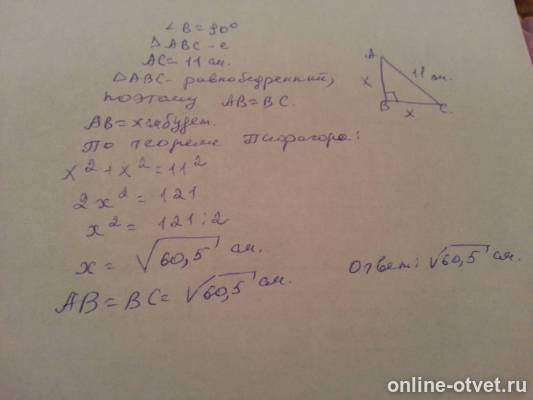 ∠B=90°
△ABC-е
AC=11 см.
△ABC- равнобедренный,
поэтому AB=BC.
AB=x
По теореме Пифагора:
x²+x²=11²
2x²=121
x²=121:2
x=√60,5 см.
AB=BC=√60,5 см.
A
x
11 см.
B
x
C
Ответ: √60,5 см.
online-otvet.ru